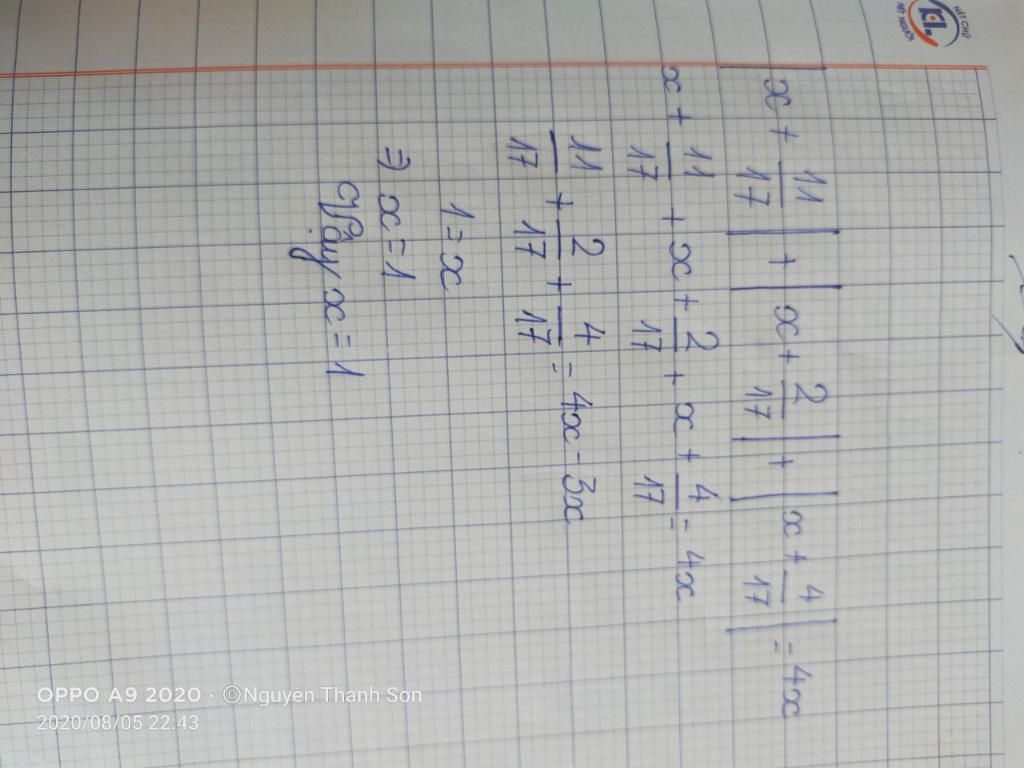 NÉT CHỮ
NẾT NGƯỜI
|x + 11/17| + |x + 2/17| + |x + 4/17| = 4x
x + 11/17 + x + 2/17 + x + 4/17 = 4x
11/17 + 2/17 + 4/17 = 4x - 3x
1 = x
=> x = 1
Vậy x = 1
OPPO A9 2020 · ©Nguyễn Thanh Sơn
2020/08/05 22:43